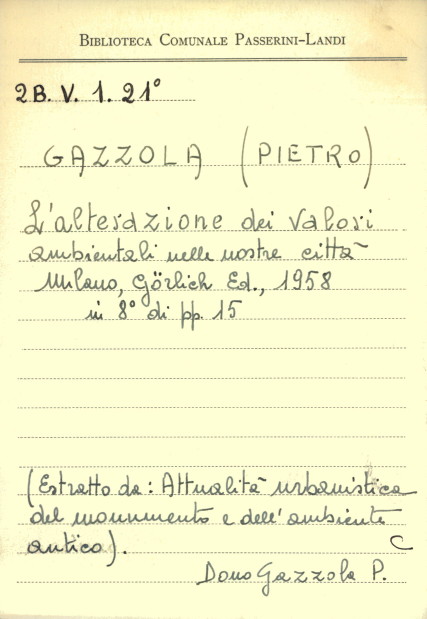 BIBLIOTECA COMUNALE PASSERINI-LANDI
2B. V. 1. 21°
GAZZOLA (PIETRO)
L'alterazione dei valori
ambientali nelle nostre città
Milano, Görlich Ed., 1958
in 8° di pp. 15
(Estratto da: Attualità urbanistica
del monumento e dell'ambiente
antico). C
Dono Gazzola P.